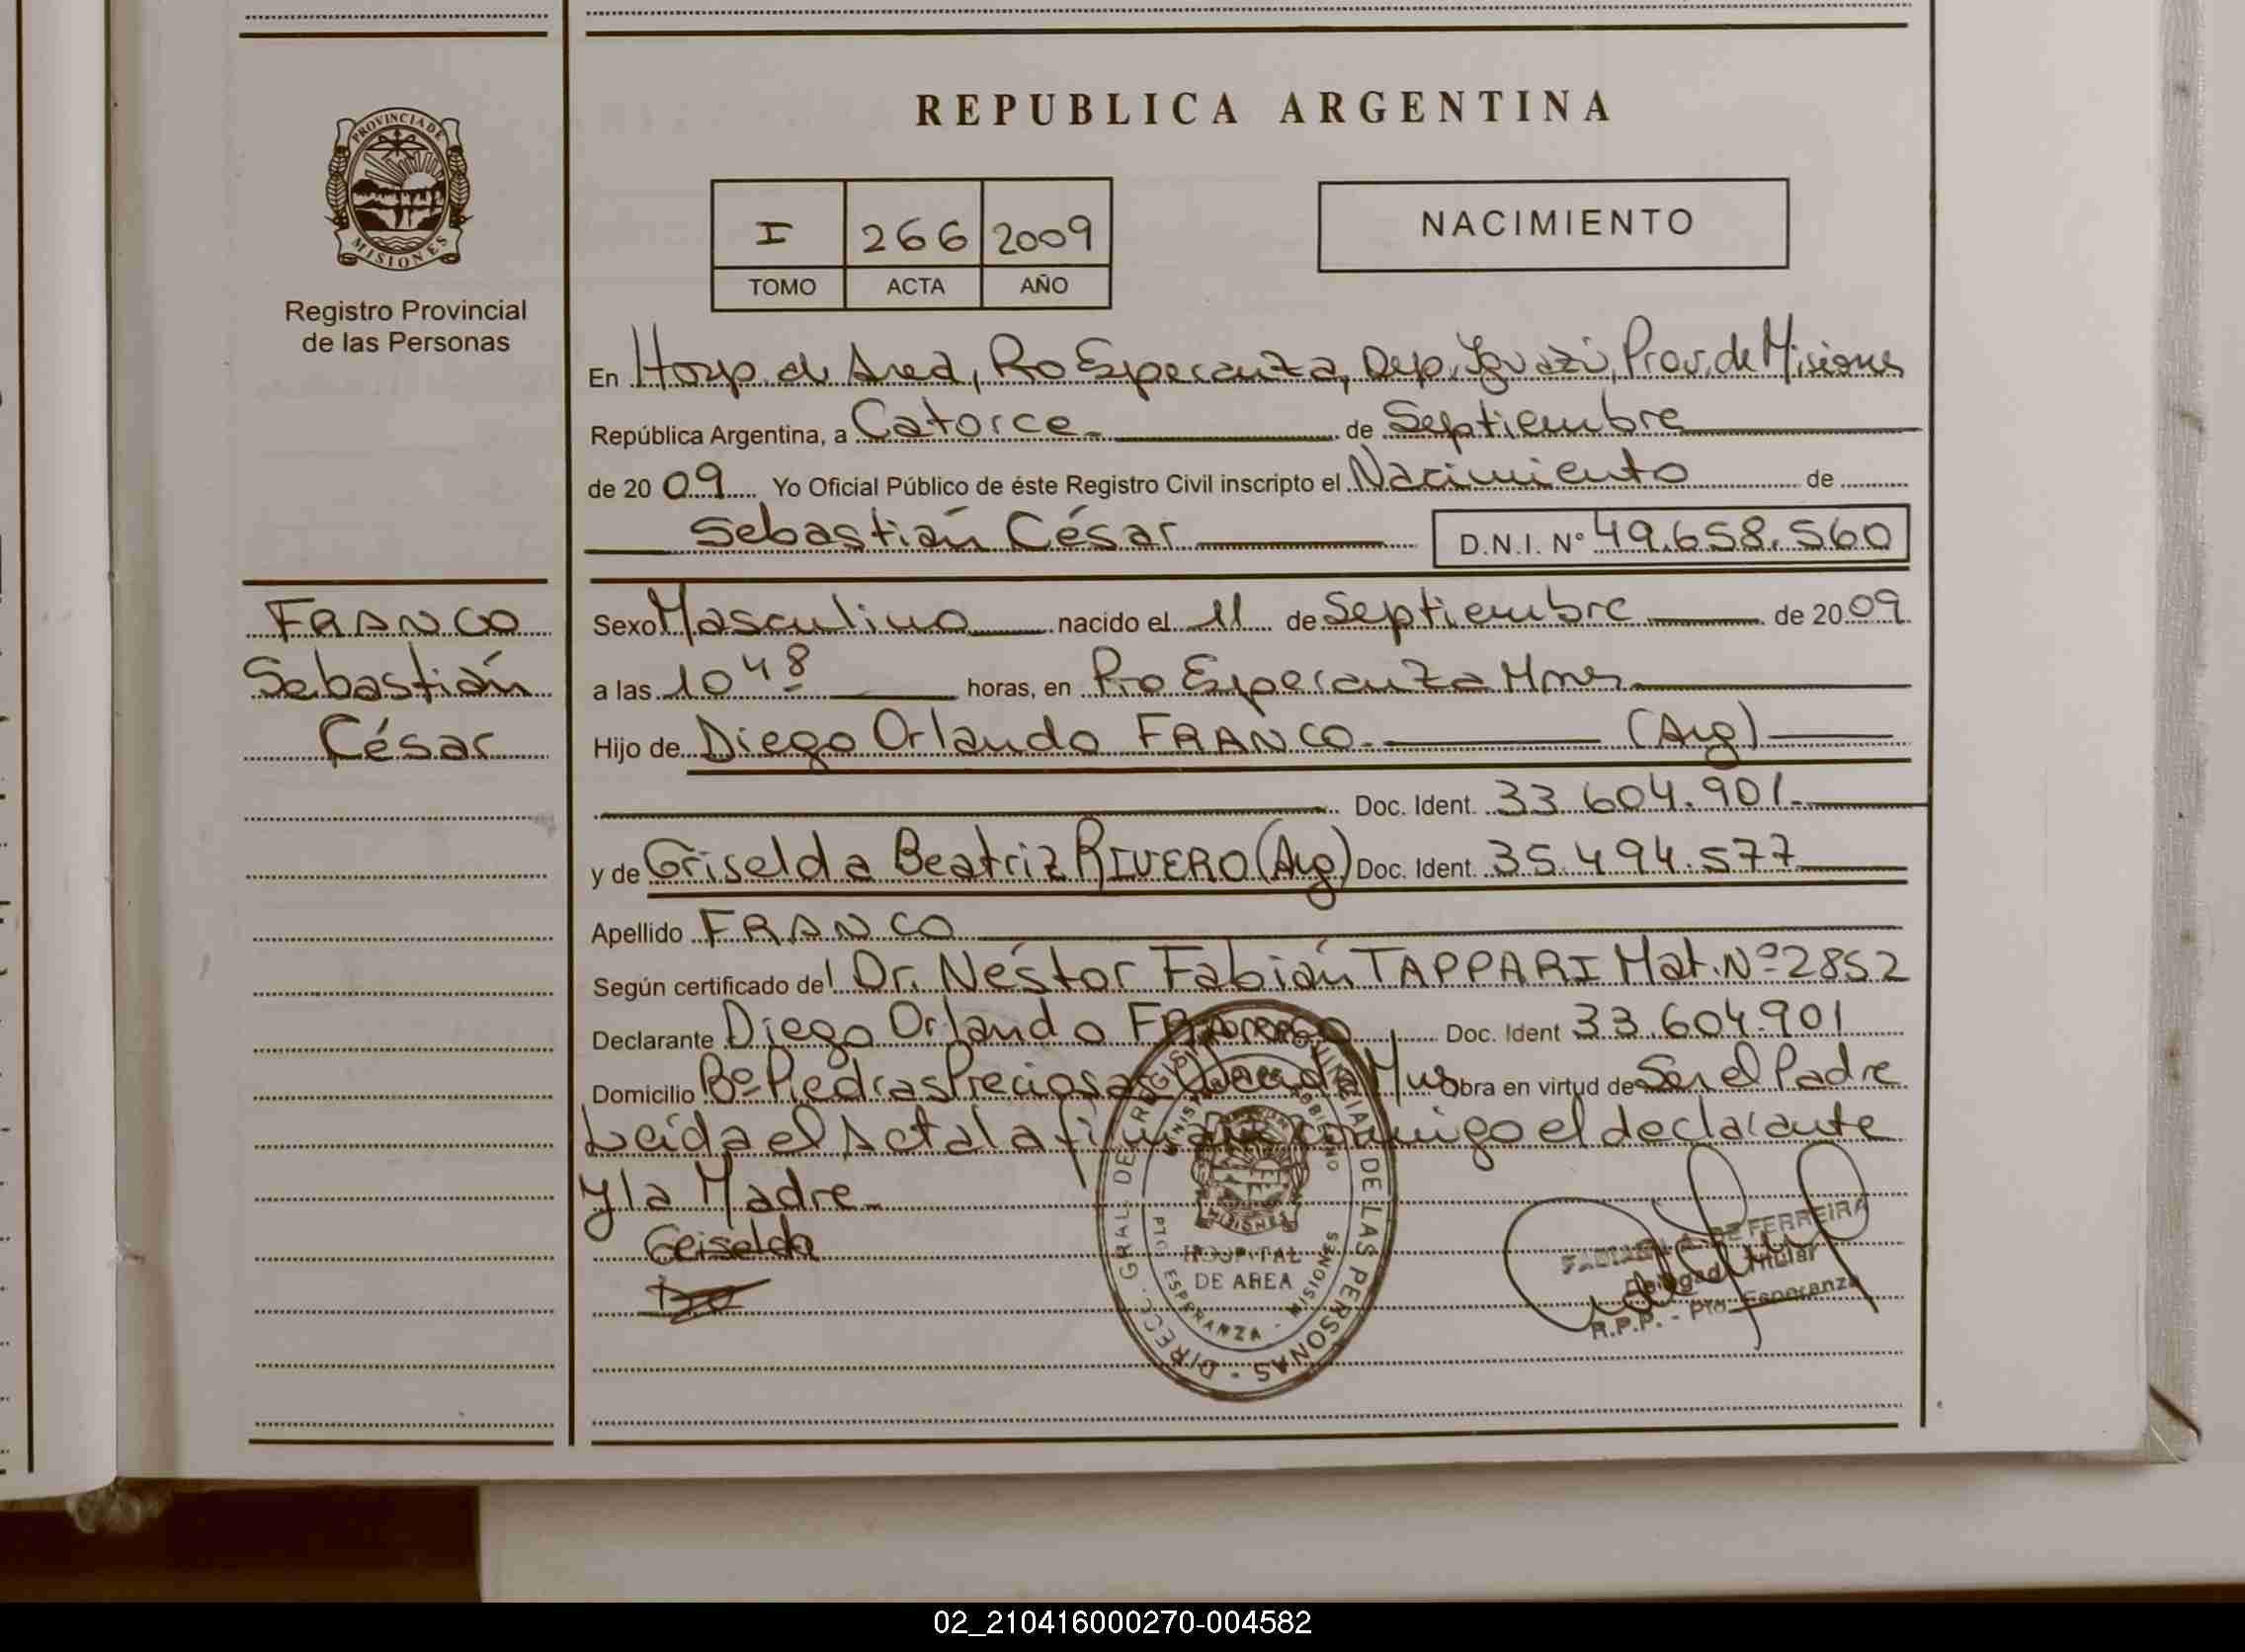 REPUBLICA ARGENTINA
PROVINCIA DE
MISIONES
Registro Provincial
de las Personas
I 266 2009
TOMO ACTA AÑO
NACIMIENTO
En Hosp. de Area, Pto Esperanza, Dep. Iguazú, Prov. de Misiones
República Argentina, a Catorce de Septiembre
de 20 09 Yo Oficial Público de éste Registro Civil inscripto el Nacimiento de
Sebastián César D.N.I. Nº 49.658.560
FRANCO
Sebastián
César
Sexo Masculino nacido el 11 de Septiembre de 20 09
a las 10 48 horas, en Pto Esperanza Mnes
Hijo de Diego Orlando FRANCO. (Arg)
Doc. Ident. 33.604.901.
y de Griselda Beatriz RIVERO (Arg) Doc. Ident. 35.494.577
Apellido FRANCO
Según certificado del Dr. Néstor Fabián TAPPARI Mat. Nº 2852
Declarante Diego Orlando FRANCO Doc. Ident 33.604.901
Domicilio Bº Piedras Preciosas Wanda Mns obra en virtud de Ser el Padre
Leída el Acta la firman conmigo el declarante
y la Madre
Griselda
DIRECC. GRAL. DE REGISTRO PROVINCIAL DE LAS PERSONAS
MISIONES
HOSPITAL
DE AREA
PTO ESPERANZA - MISIONES
DE FERREIRA
Delegad Titular
R.P.P. - Pto. Esperanza
02_210416000270-004582